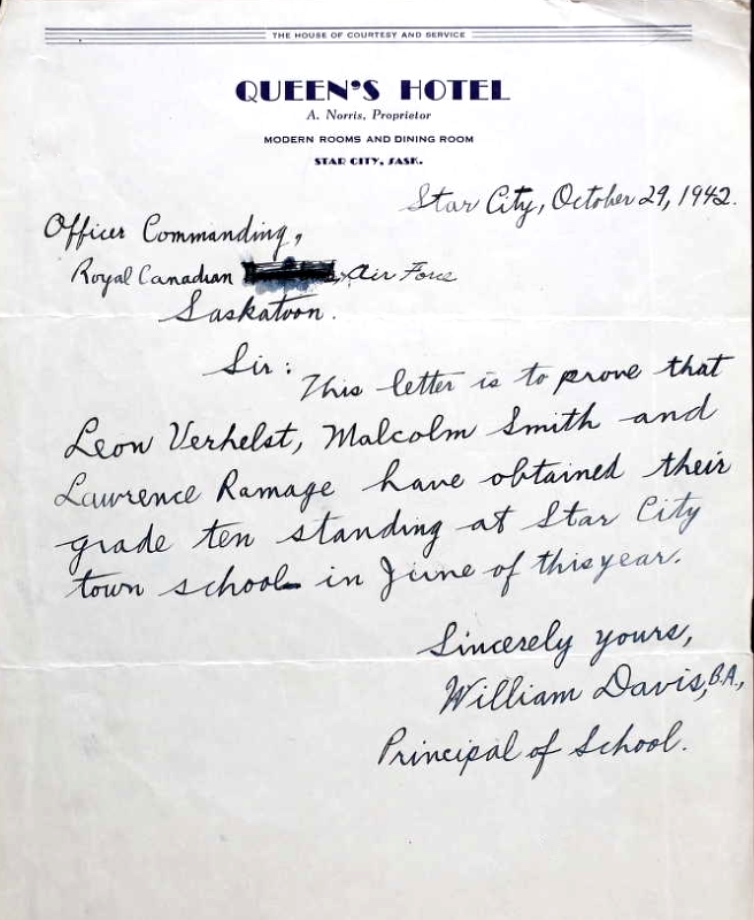 THE HOUSE OF COURTESY AND SERVICE
QUEEN'S HOTEL
A. Norris, Proprietor
MODERN ROOMS AND DINING ROOM
STAR CITY, SASK.
Star City, October 29, 1942.
Officer Commanding,
Royal Canadian Air Force
Saskatoon.
Sir:
This letter is to prove that
Leon Verhelst, Malcolm Smith and
Lawrence Ramage have obtained their
grade ten standing at Star City
town school in June of this year.
Sincerely yours,
William Davis, B.A.,
Principal of School.